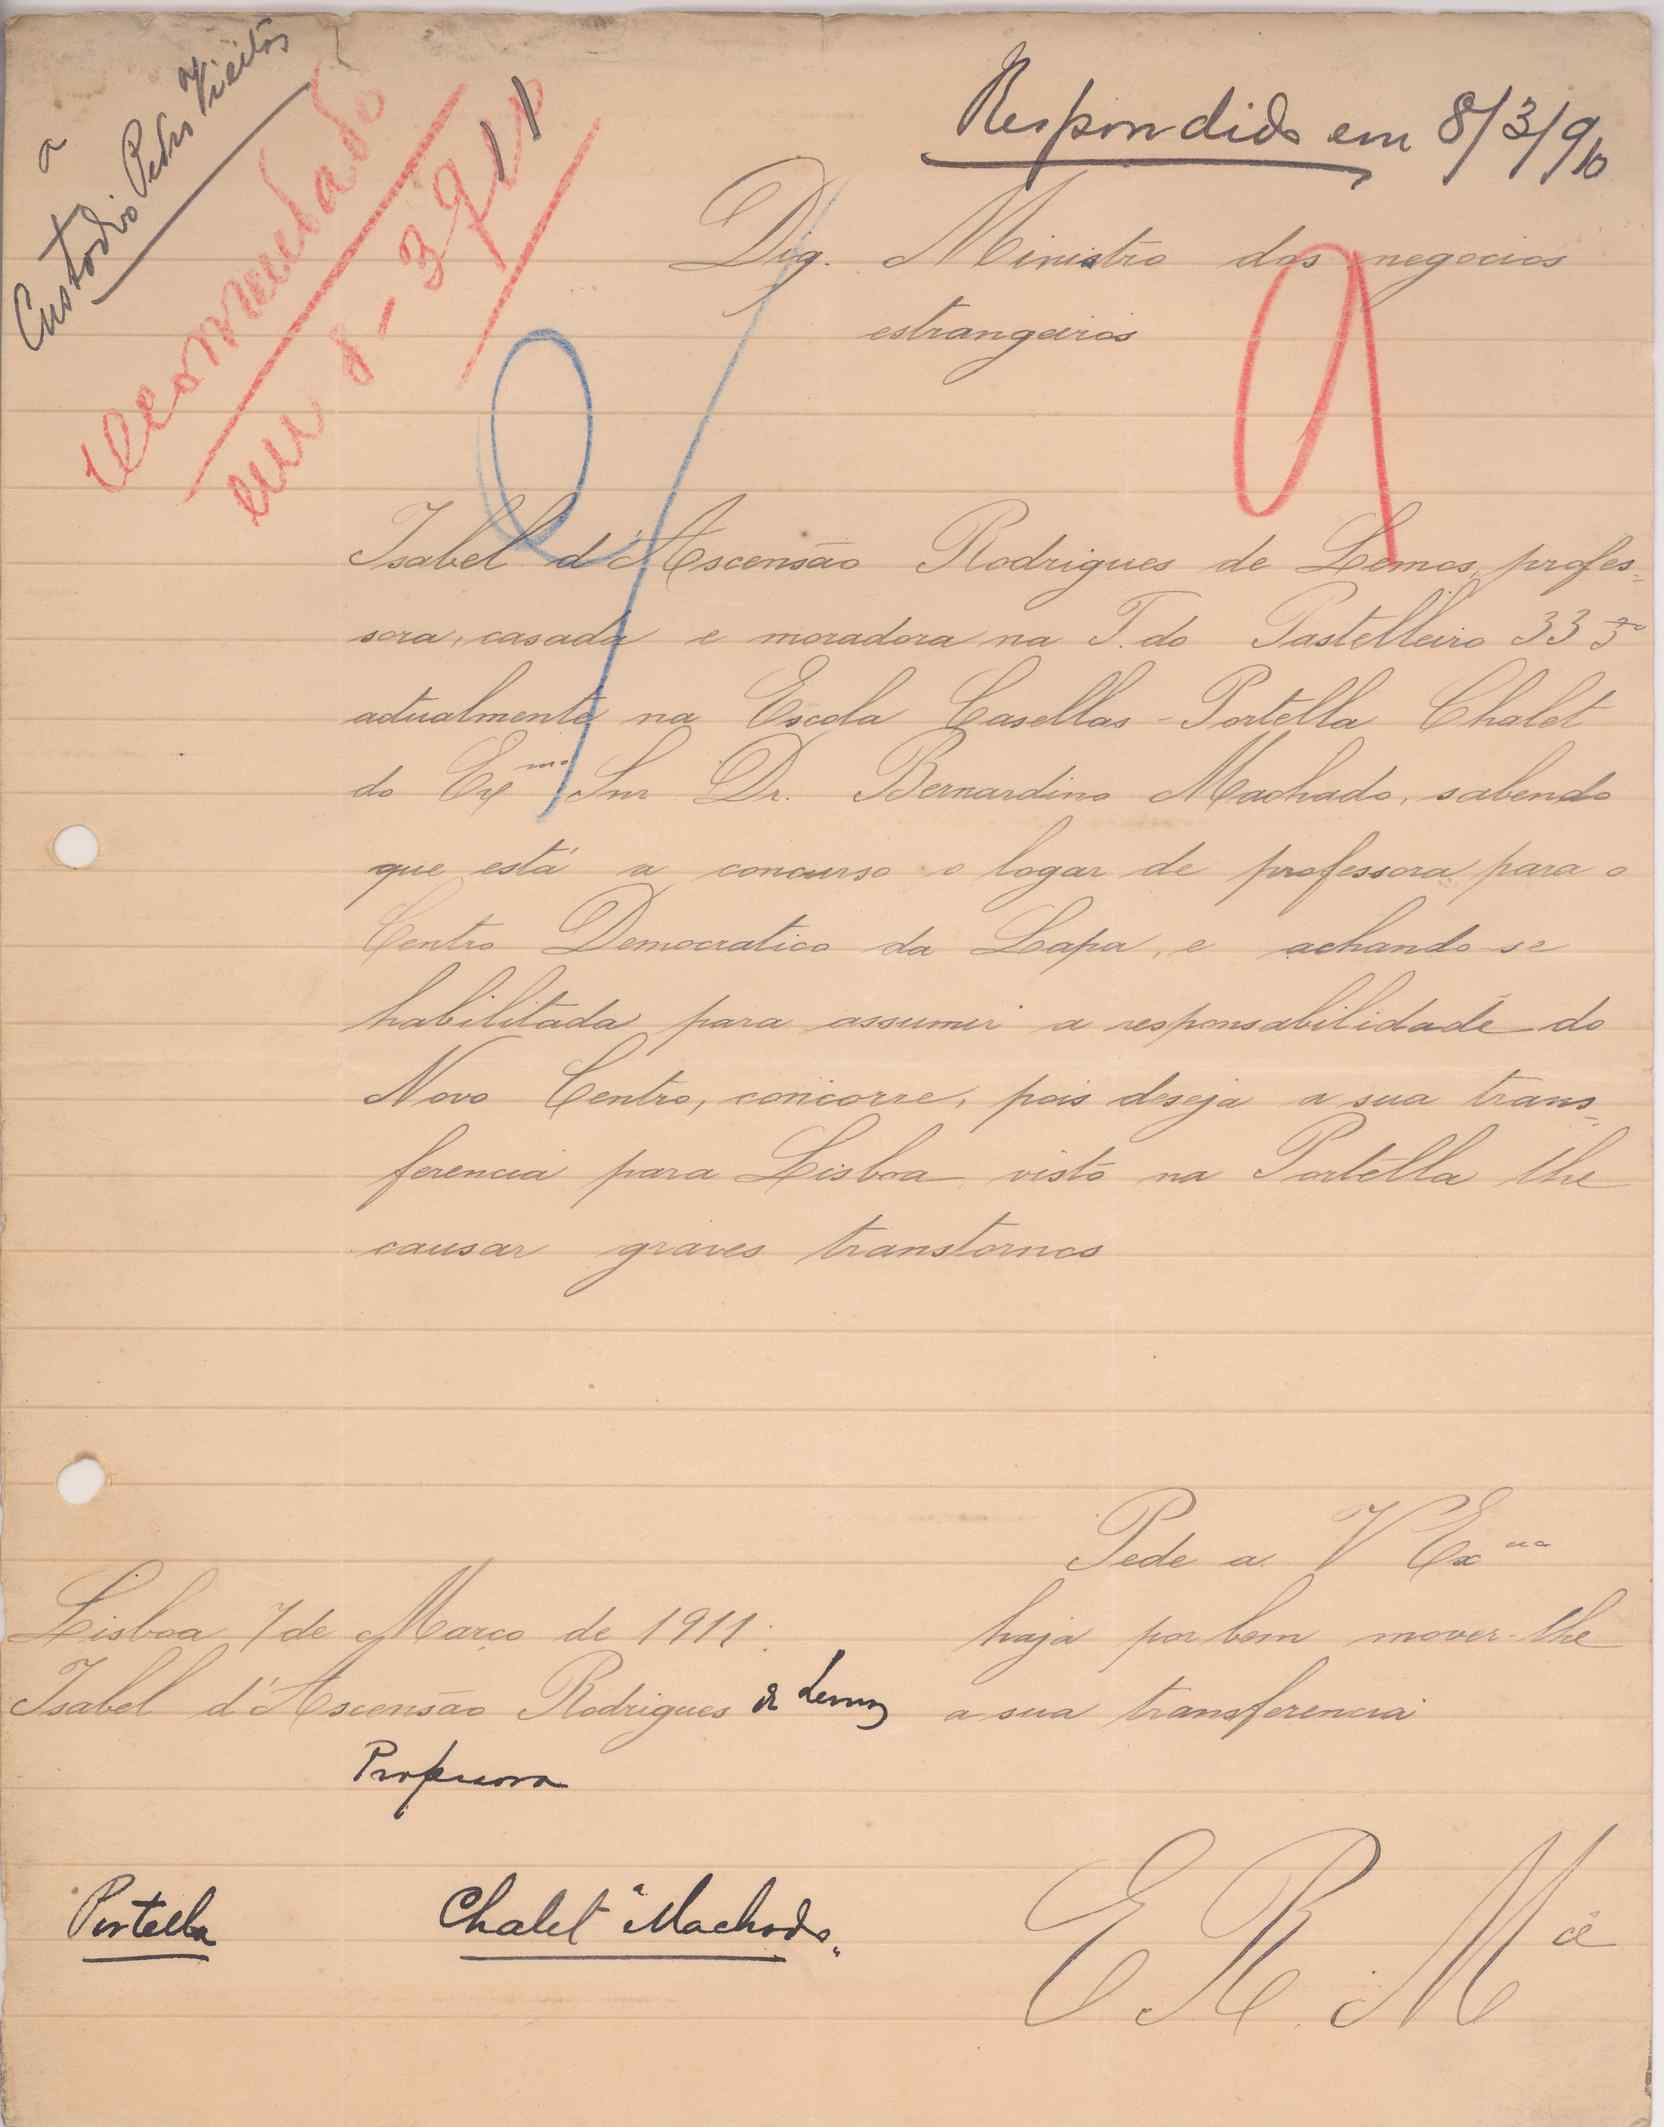 a
Custodio Pedro Freitas
Recommendado
em 8-3-911
Respondido em 8/3/910
Dig. Ministro dos negocios
estrangeiros
9
Isabel d'Ascensão Rodrigues de Lemos, profes=
sora, casada e moradora na T. do Pastelleiro 33 3º
actualmente na Escola Casellas-Portella Chalet
do Exmo Snr Dr. Bernardino Machado, sabendo
que está a concurso o logar de professora para o
Centro Democratico da Lapa, e achando-se
habilitada para assumir a responsabilidade do
Novo Centro, concorre, pois deseja a sua trans=
ferencia para Lisboa visto na Portella lhe
causar graves transtornos
Pede a V Exma
haja por bem mover-lhe
a sua transferencia
Lisboa 7 de Março de 1911.
Isabel d'Ascensão Rodrigues de Lemos
Professora
Portella Chalet "Machado"
E R Mcê